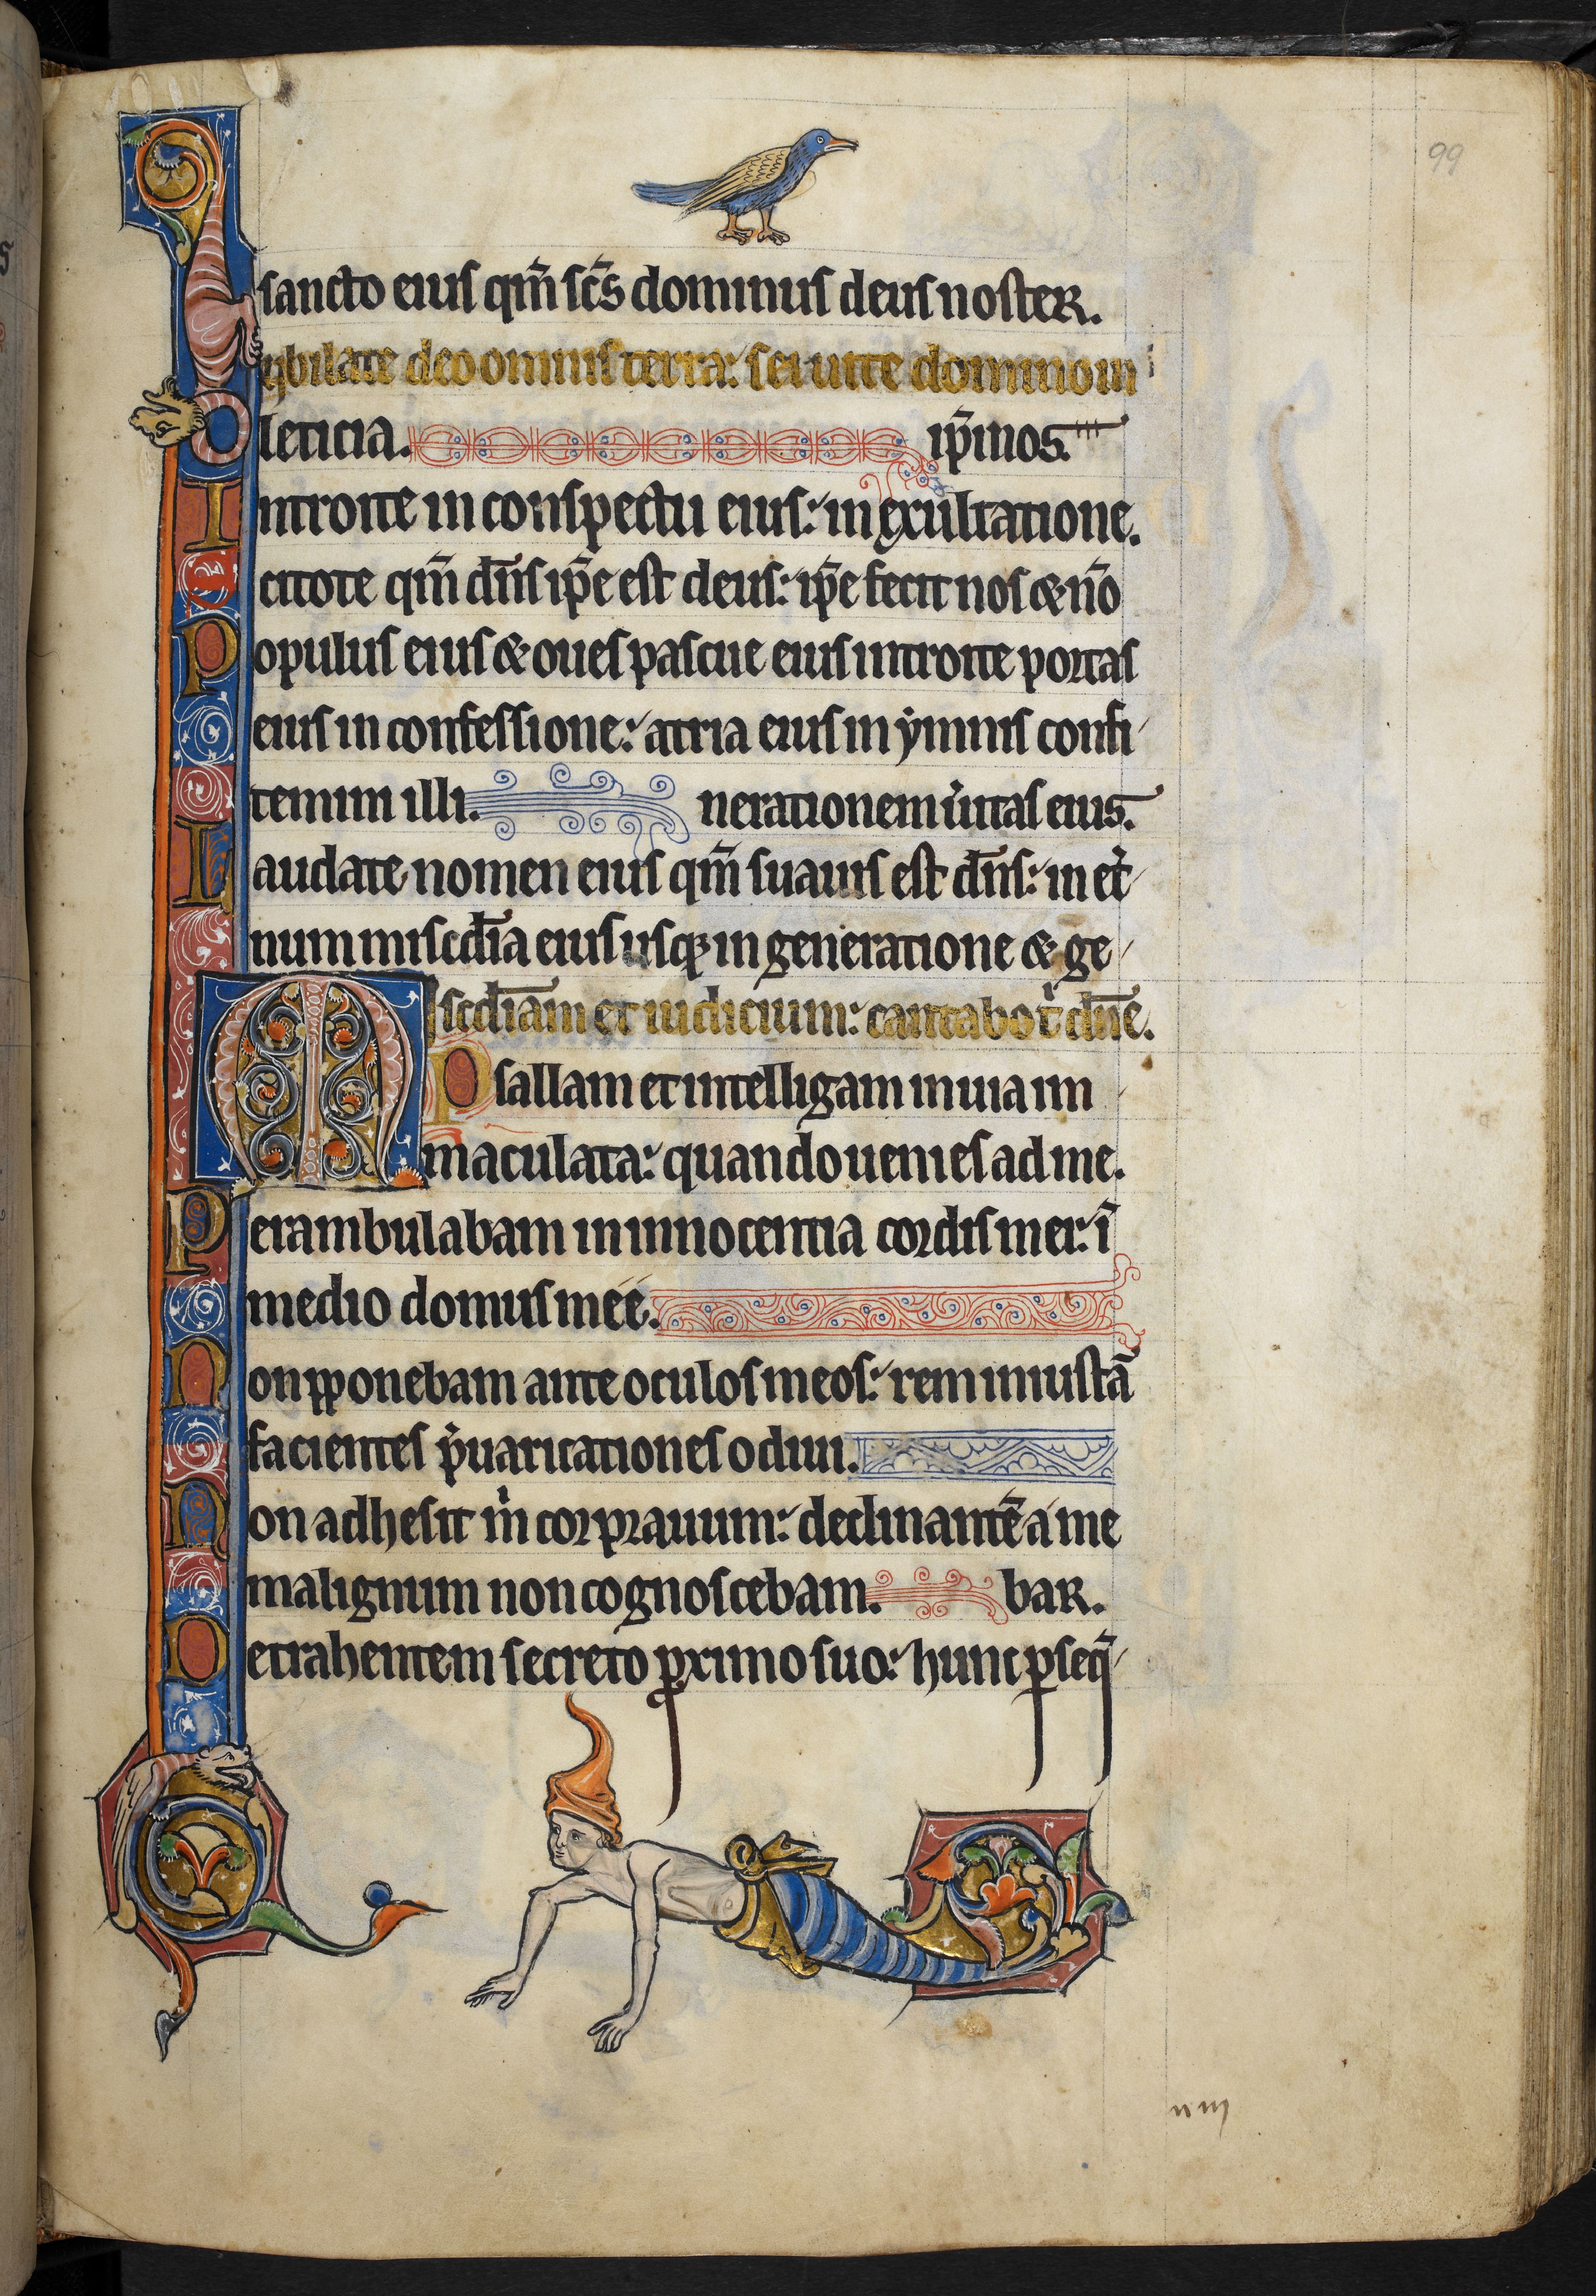 99
sancto eius qm̄ sc̄s dominus deus noster.
Iubilate deo omnis terra: seruite domino in
leticia. ip̄i nos.
Introite in conspectu eius: in exultatione.
Scitote qm̄ dn̄s ip̄e est deus: ip̄e fecit nos & nō
Populus eius & oues pascue eius introite portas
eius in confessione: atria eius in ẏmnis confi
temini illi. nerationem ueritas eius.
Laudate nomen eius qm̄ suauis est dn̄s: in et̾
num misc̄dia eius usq; in generatione & ge
Misc̄diam et iudicium: cantabo t̾ dn̄e.
Psallam et intelligam in uia im
maculata: quando uenies ad me.
Perambulabam in innocentia cordis mei: ī
medio domus meé.
Non ꝓponebam ante oculos meos: rem iniustā
facientes p̾uaricationes odiui.
Non adhesit m̾ cor prauum: declinantē a me
malignum non cognoscebam. bar.
Detrahentem secreto ꝓximo suo: hunc ꝑseq̄